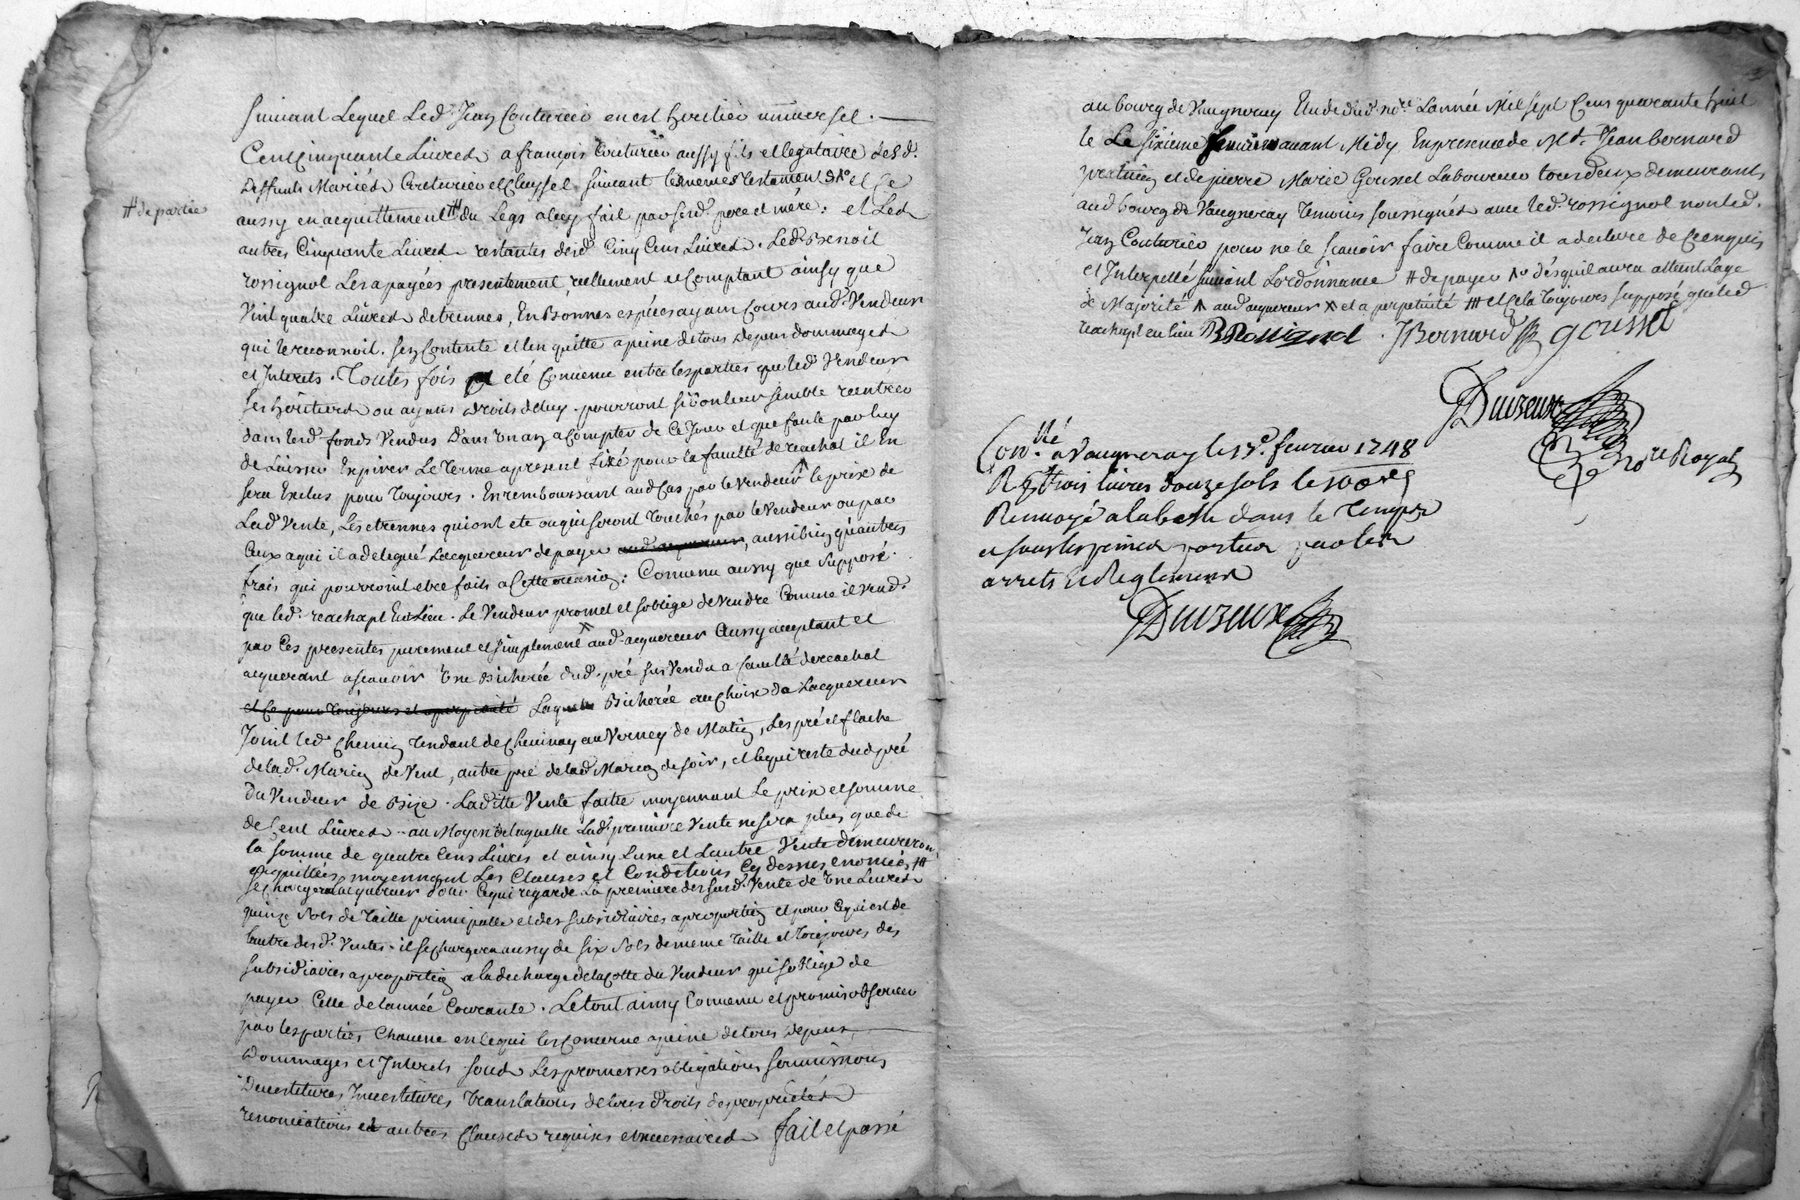 suivant Lequel Led. Jean Couturier en est heritier universel.
Cent Cinquante Livres a francois Couturier aussy fils et legataire desd.
Deffunts Mariés Couturier et suivant testament et Ce
# de partie
aussy en acquittement # du Legs a luy fait par sesd. pere et mére: et Les
autres Cinquante Livres restantes desd. Cinq Cens Livres. Led. Benoit
rossignol Les a payées presentement, réellement et Comptant ainsy que
Vint quatre Livres detrennes, En Bonnes espéces ayant Cours aud. Vendeur
qui le reconnoit. sen Contente et len quitte a peine de tous depens dommages
et Interets. Toutes fois eté Convenu entre les parties que led. Vendeur
ses héritiers ou ayans droits de luy. pourront si bon leur semble rentrer
dans lesd. fonds Vendus Dans un an a Compter de Ce Jour et que faute par luy
de Laisser Expirer Le terme a present fixé pour la faculté de reachat il En
sera Exclus pour toujours. En remboursant aud. Cas par le vendeur le prix de
Lad. Vente, Les etrennes qui ont eté ou qui seront touchés par le Vendeur ou par
Ceux a qui il a delegué Lacquereur de payer aud. acquereur, aussi bien qu'autres
frais qui pourroint etre faits a Cette occasion: Convenu aussy que supposé
que led. reachapt Eut Lieu. Le Vendeur promet et soblige de Vendre Comme il Vend.
par Ces presentes purement et simplement aud. acquereur aussy acceptant et
acquerant ascavoir Une Bicherée dud. pré sus Vendu a faculté de reachat
et Ce pour toujours et a perpetuité Laquelle Bicherée au Choix de Lacquereur
Joint led. Chemin tendant de Chevinay au Verney de Matin, Les pré et flache
de lad. Marion de Vent, autre pré de lad. Marion de soir, et le qui reste dud. pré
du Vendeur de Bize. Laditte Vente faitte moyennant Le prix et somme
de Cent Livres. au Moyen de laquelle Lad. premiére Vente ne sera plus que de
la somme de quatre Cens Livres et ainsy Lune et Lautre Vente demeureront
acquittées moyennant Les Clauses et Conditions Cy dessus enoncées #
se chargera lacquereur pour Ce qui regarde La premiere desusd. Vente de Une Livres
quinze sols de taille principalle et des subsidiaires a proportion et pour Ce qui est de
Lautre desd. Ventes. il se chargera aussy de six sols de meme taille et toujours des
subsidiaires a proportion a la decharge de la Cotte du Vendeur qui soblige de
payer Celle de lannée Courante. Le tout ainsy Convenu et promis observer
par les parties Chacune en le qui les Concerne a peine de tous depens
Dommages et Interets. sous Les promesses obligations soumissions
Devestitures Investitures translations de tous droits de proprietés
renonciations et autres Clauses requises et necessaires fait et passé
au bourg de Vaugneray Etude dud. nore. Lannée Mil sept Cens quarante huit
le Le sixieme fevrier avant Midy En presence de Me. Jean Bernard
praticien et de pierre Marie Gousset Laboureur tous deux demeurants
aud. bourg de Vaugneray temoins soussignés avec led. rossignol non led.
Jean Couturier pour ne le scavoir faire Comme il a declaré de Ce enquis
et Interpellé suivant Lordonnance # de payer désquil aura atteint Lage
de Majorité aud. acquereur et a perpetuité # et Cela toujours supposé que led.
reachapt eu lieu BRossignol. JBernard gousset
Duvzeux
nore Royal
Conllé. a Vaugneray le 13e. fevrier 1748
R trois livres douze sols le 100e
Renvoyé a dans le temps
et sous les peines portees par les
arrets et Reglemens
Duvzeux